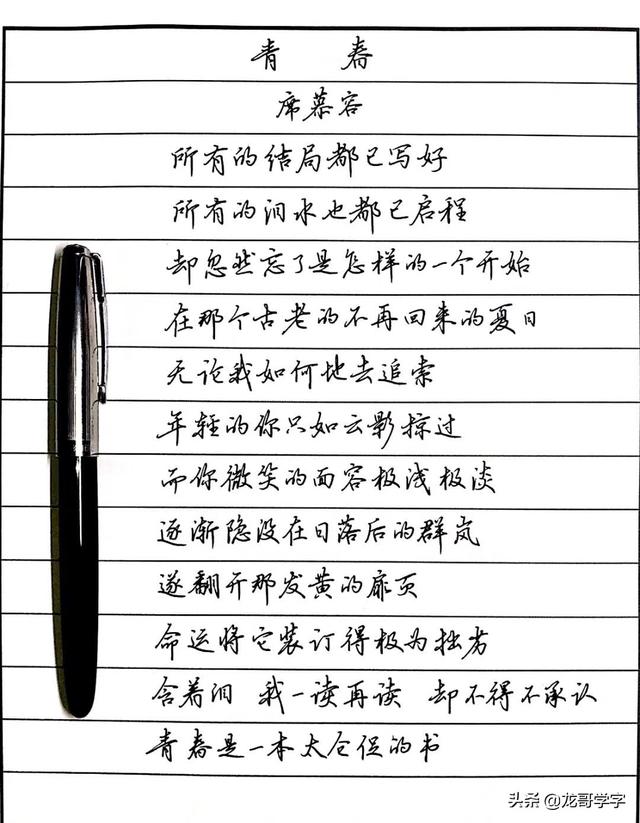 青 春
席慕容
所有的结局都已写好
所有的泪水也都已启程
却忽然忘了是怎样的一个开始
在那个古老的不再回来的夏日
无论我如何地去追索
年轻的你只如云影掠过
而你微笑的面容极浅极淡
逐渐隐没在日落后的群岚
遂翻开那发黄的扉页
命运将它装订得极为拙劣
含着泪 我一读再读 却不得不承认
青春是一本太仓促的书
头条@龙哥学字